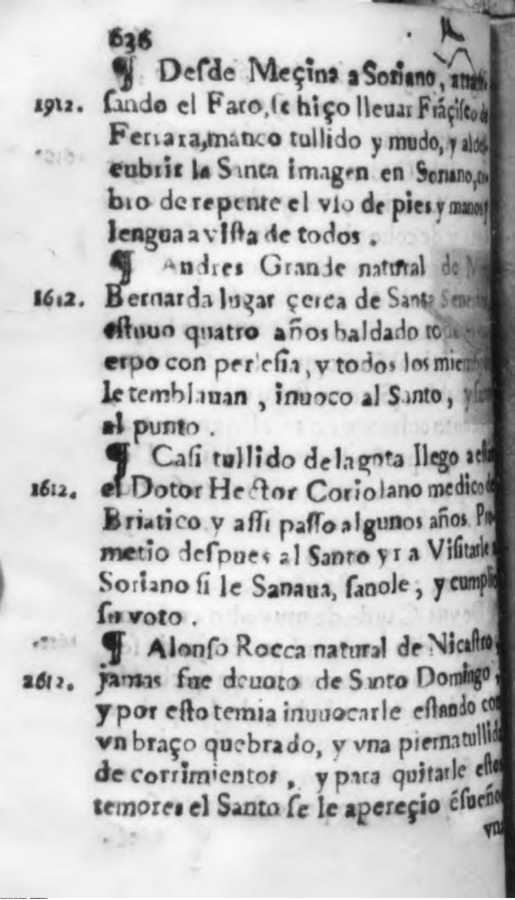 636
¶ Desde Meçina a Soriano,
1912. sando el Faro, se hiço lleuar Frãçisco de
Ferrara, manco tullido y mudo, y al des
cubrir la Santa imagen en Soriano,
bio de repente el vso de pies y manos y
lengua a vista de todos.
¶ Andres Grande natural de
1612. Bernarda lugar çerca de Santa
estuuo quatro años baldado
erpo con perlesia, y todos los miem
le temblauan, inuoco al Santo,
al punto.
¶ Casi tullido de la gota llego a
1612. el Dotor Hector Coriolano medico de
Briatico y assi passo algunos años. Pro
metio despues al Santo yr a Visitarle a
Soriano si le Sanaua, sanole, y cumplio
su voto.
¶ Alonso Rocca natural de Nicastro,
1612. jamas fue deuoto de Santo Domingo,
y por esto temia inuuocarle estando con
vn braço quebrado, y vna pierna tullida
de corrimientos, y para quitarle estos
temores el Santo se le apereçio ẽ sueños
vna